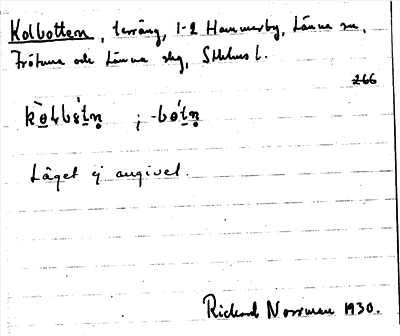 Kolbotten, terräng, 1-2 Hammerby, Länna sn,
Frötuna och Länna slg, Sthlms l.
266
Läget ej angivet.
Rickard Norrman 1930.